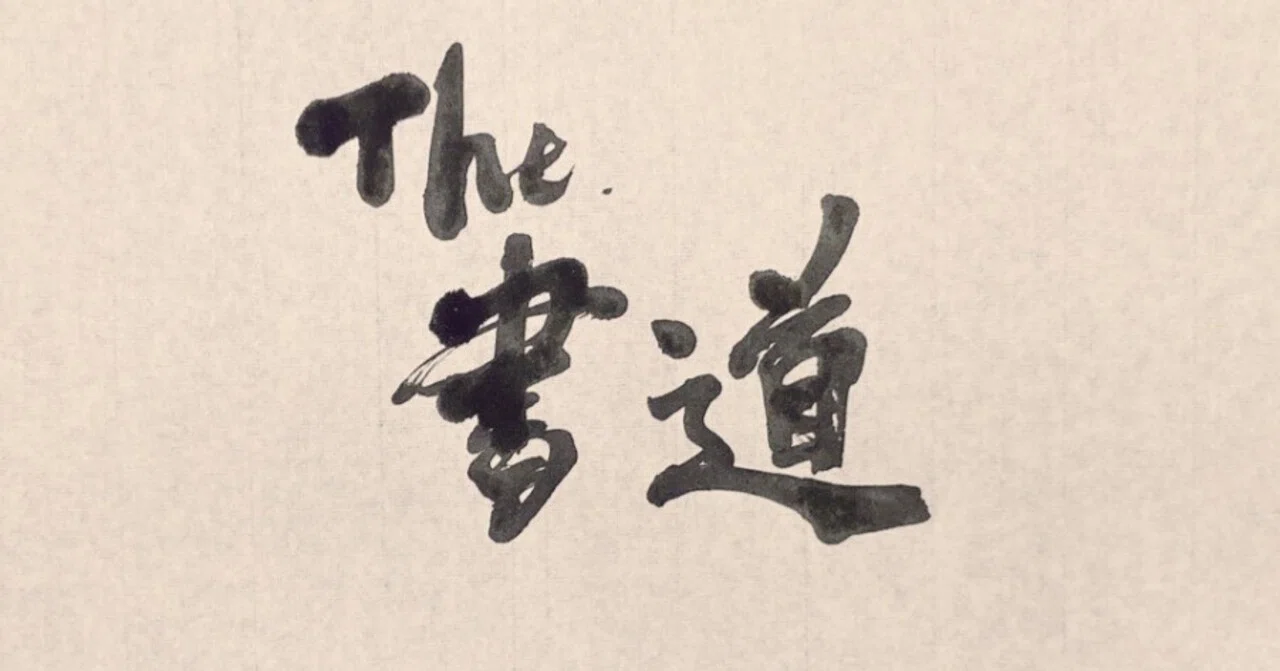 The.
書道